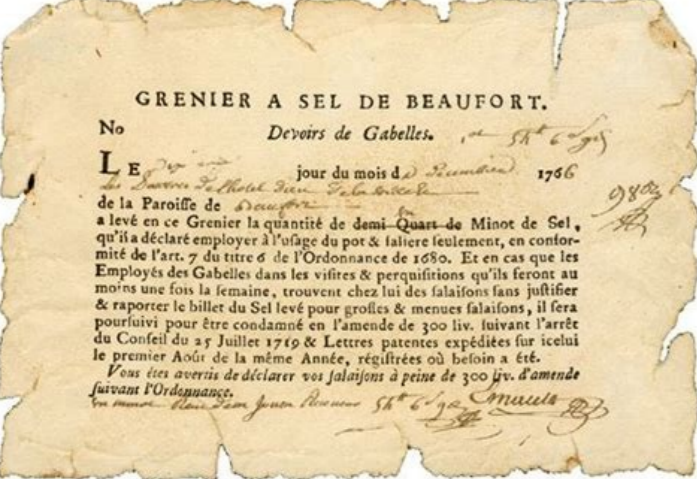 GRENIER A SEL DE BEAUFORT.
No
Devoirs de Gabelles.
LE jour du mois de Decembre 1766
de la Paroisse de Beaufort
a levé en ce Grenier la quantité de demi Quart de Minot de Sel,
qu'il a déclaré employer à l'usage du pot & saliere seulement, en confor-
mité de l'art. 7 du titre 6 de l'Ordonnance de 1680. Et en cas que les
Employés des Gabelles dans les visites & perquisitions qu'ils feront au
moins une fois la semaine, trouvent chez lui des salaisons sans justifier
& raporter le billet du Sel levé pour grosses & menues salaisons, il sera
poursuivi pour être condamné en l'amende de 300 liv. suivant l'arrêt
du Conseil du 25 Juillet 1719 & Lettres patentes expédiées sur icelui
le premier Août de la même Année, régistrées où besoin a été.
Vous êtes avertis de déclarer vos salaisons à peine de 300 liv. d'amende
suivant l'Ordonnance.